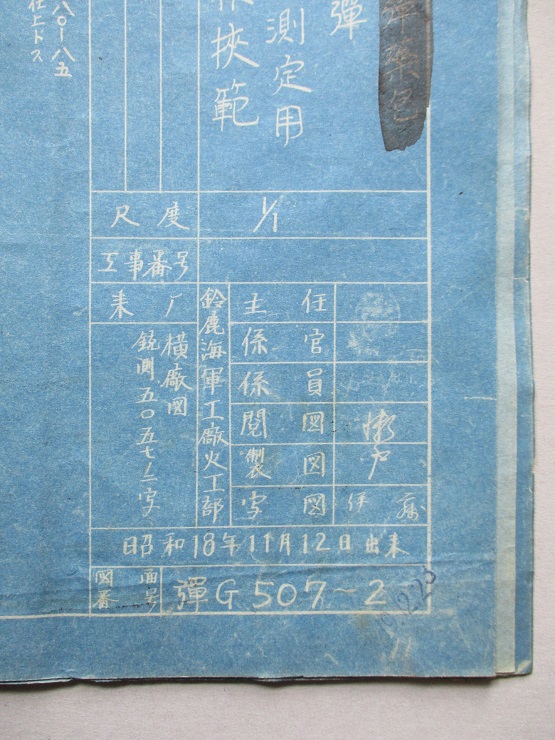 彈藥包
彈
測定用
挾範
八〇-八五
仕上トス
尺度 1/1
工事番号
来厂
横廠図
鈴鹿海軍工廠火工部
主任
係官
係員
閲図
製図
写図 伊藤
昭和18年11月12日出来
図面番号 彈G507-2
19.2.23